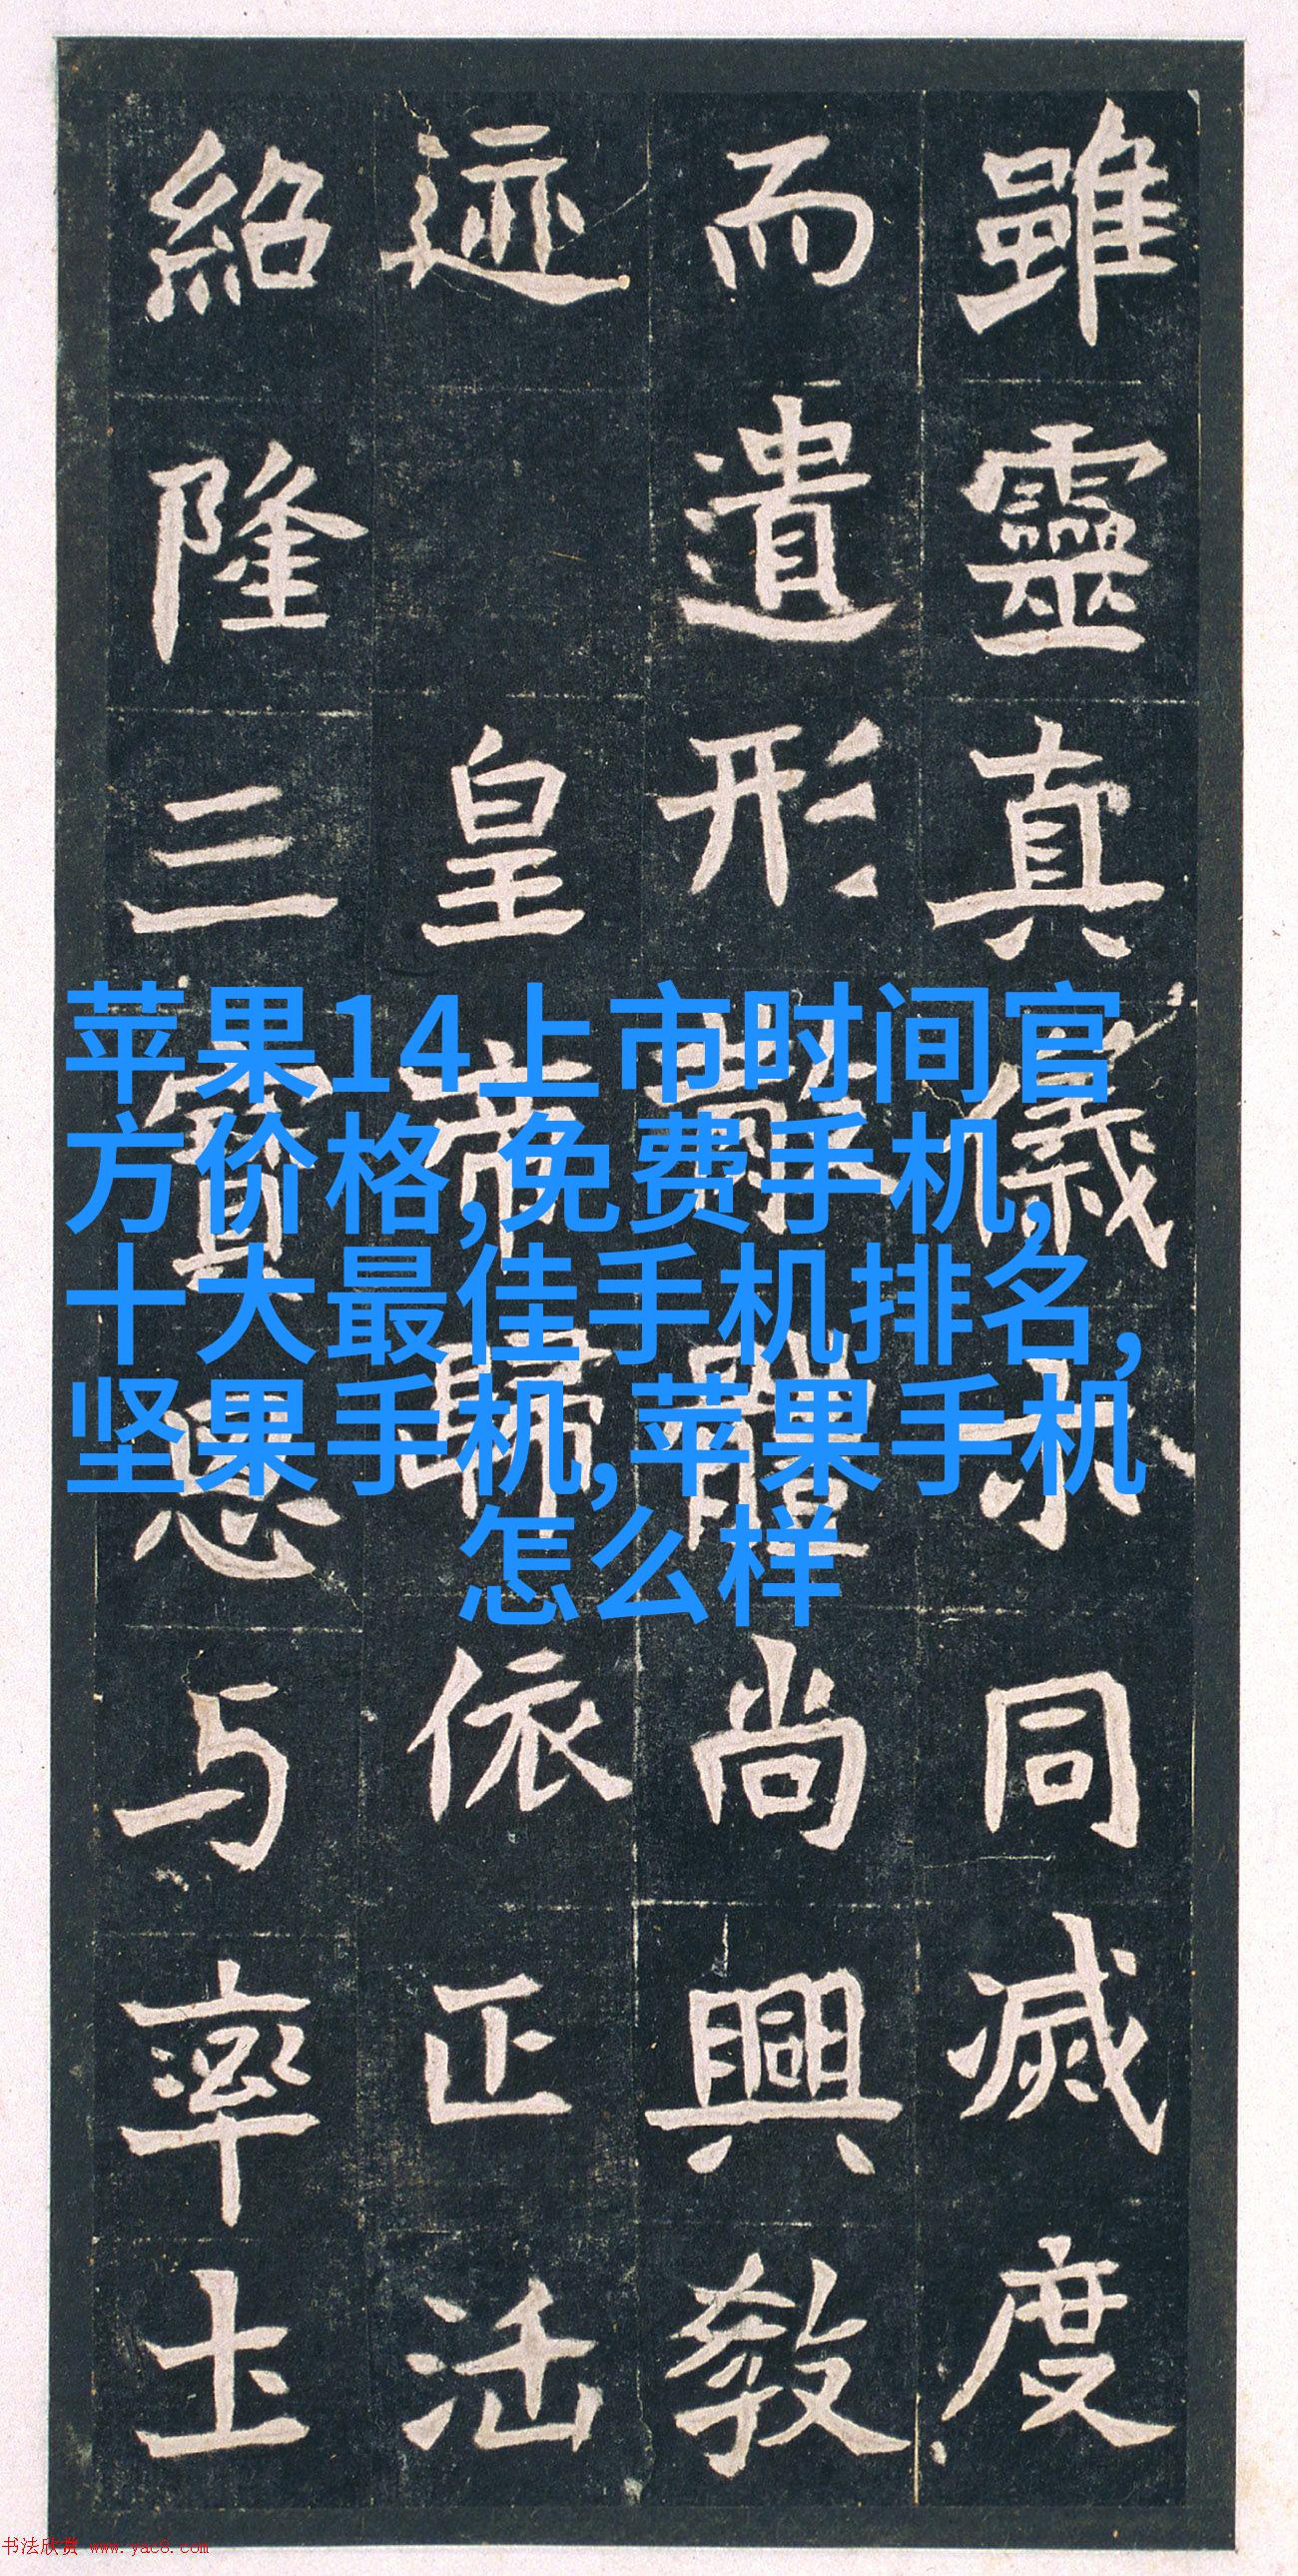 雖靈真儀示同滅度
而遺形體尚興教
迹皇帝歸依正法
紹隆三寶思与率土
苹果14上市时间官
方价格,免费手机,
十大最佳手机排名,
坚果手机,苹果手机
怎么样
书法欣赏 www.yac8.com